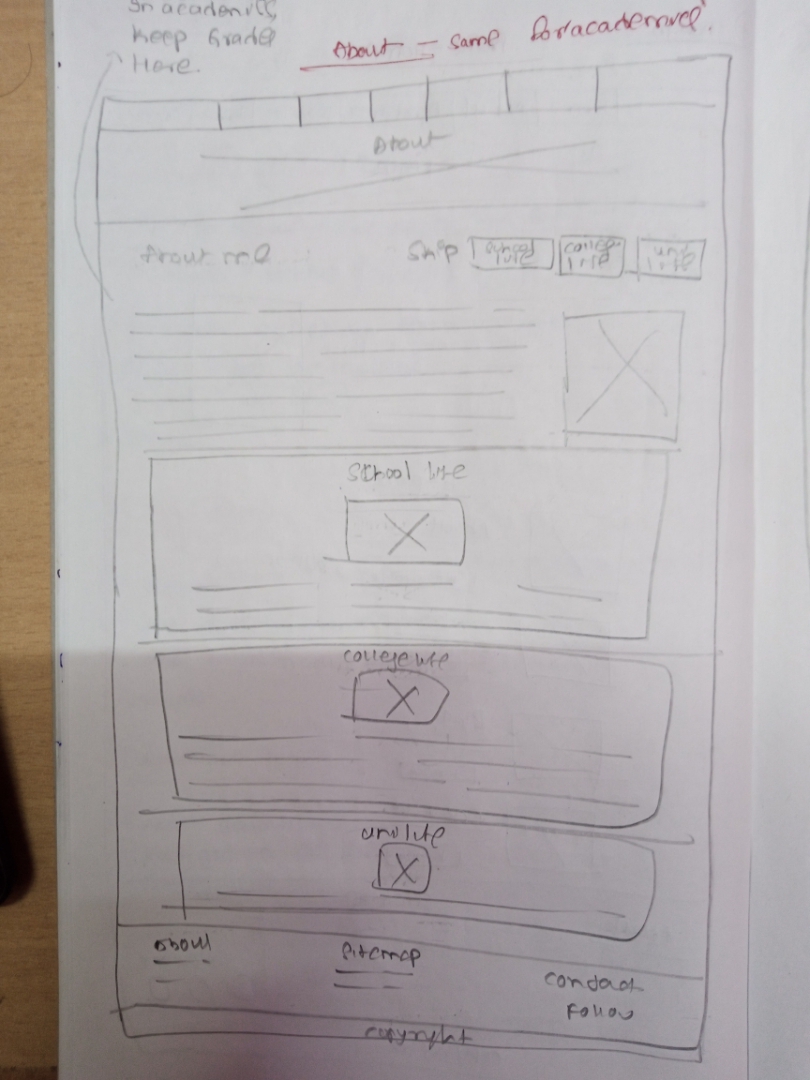 In academics,
Keep Grade
Here.
About - same for academics.
About
About me
Skip
school life
college life
uni life
School life
college life
uni life
About
Sitemap
Contact
Follow
copyright